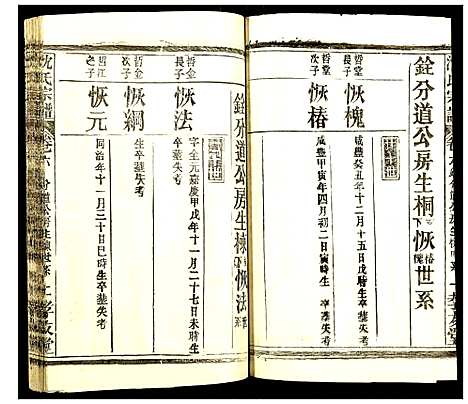 銓分道公房生桐下恢槐椿世系
哲堂長子
恢槐
咸豐癸丑年十二月十五日戌時生 卒墓失考
哲堂次子
恢椿
咸豐甲寅年四月初二日寅時生 卒墓失考
銓分道公房生棟下恢法世系
哲金長子
恢法
字全元嘉慶甲戌年十一月二十七日未時生
卒墓失考
哲金次子
恢綱
生卒墓失考
哲江之子
恢元
同治年十一月二十日巳時生 卒墓失考
沈氏宗譜
卷七六
孝友堂